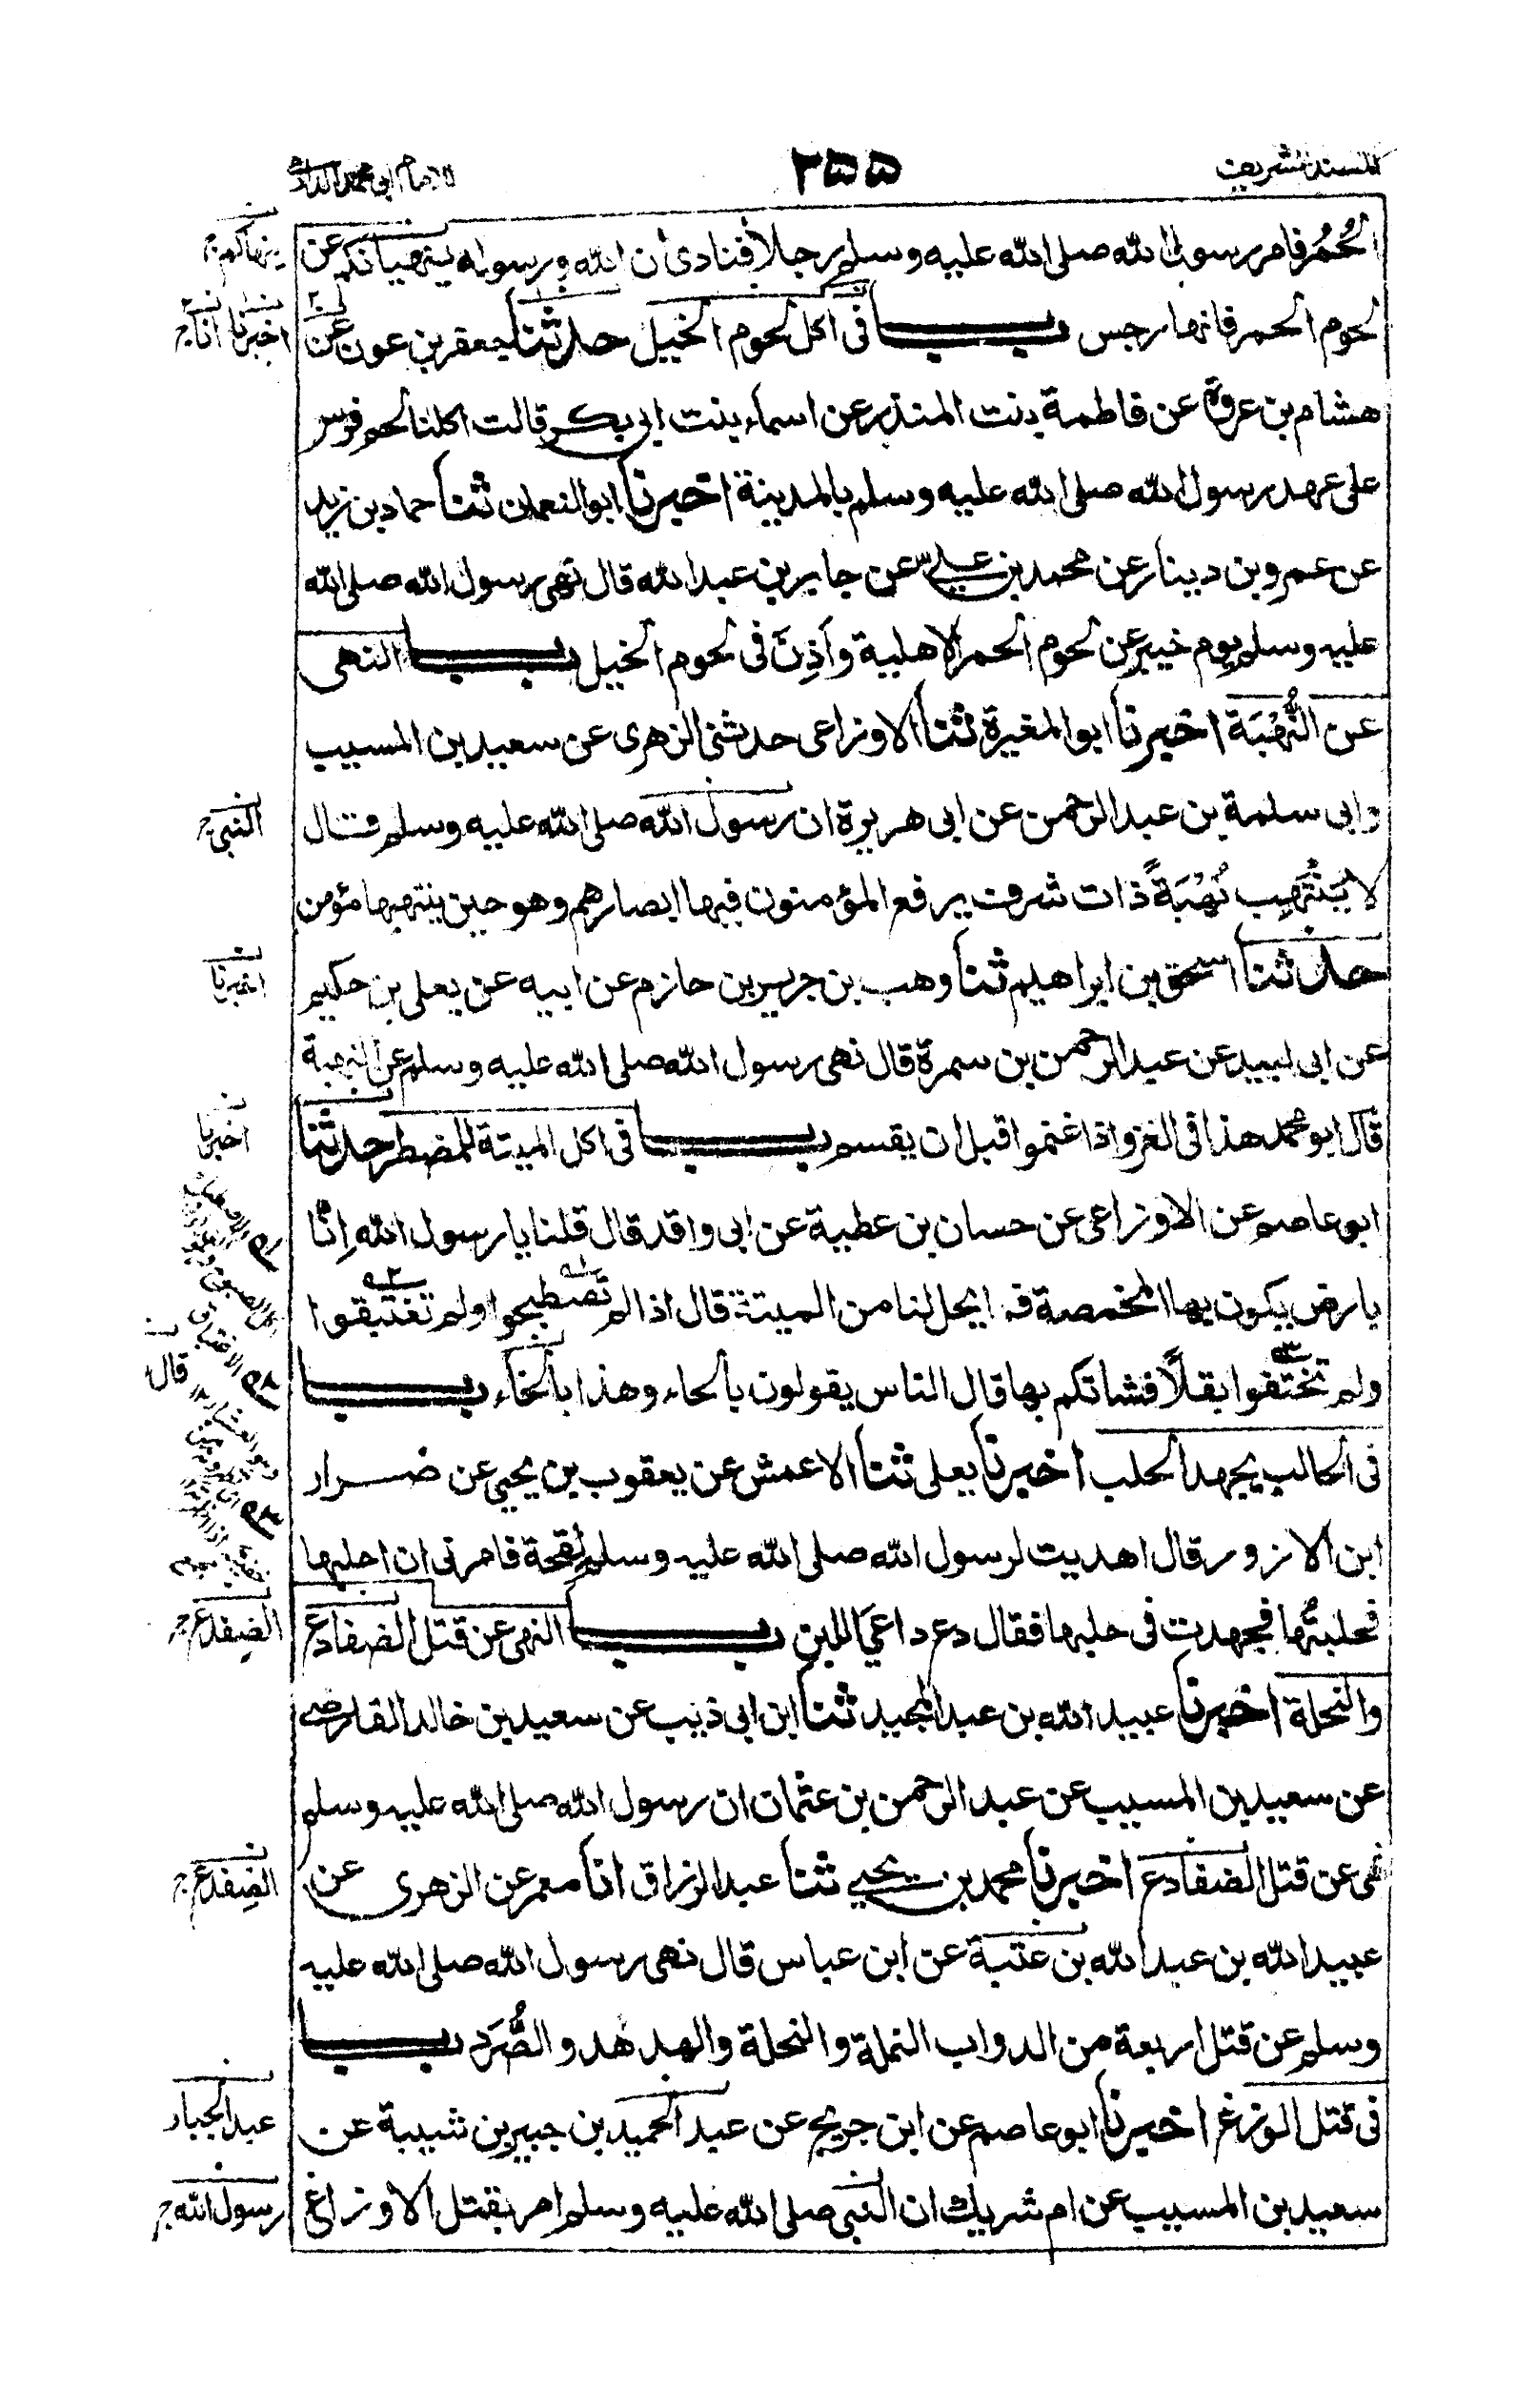 المسند الشريف
٢٥٥
للامام ابي محمد الدارمي
الحُمُر فامر رسول الله صلى الله عليه وسلم رجلا فنادى ان الله ورسوله ينهيانكم عن
ينهاكم
لحوم الحمر فانها رجس باب فى اكل لحوم الخيل حدثنا جعفر بن عون عن
اخبرنا انا
هشام بن عروة عن فاطمة بنت المنذر عن اسماء بنت ابى بكر قالت اكلنا لحم فرس
على عهد رسول الله صلى الله عليه وسلم بالمدينة اخبرنا ابو النعمان ثنا حماد بن زيد
عن عمرو بن دينار عن محمد بن على عن جابر بن عبد الله قال نهى رسول الله صلى الله
عليه وسلم يوم خيبر عن لحوم الحمر الاهلية وأذِنَ فى لحوم الخيل باب النهى
عن النُّهْبَة اخبرنا ابو المغيرة ثنا الاوزاعى حدثنى الزهرى عن سعيد بن المسيب
وابى سلمة بن عبد الرحمن عن ابى هريرة ان رسول الله صلى الله عليه وسلم قال
النبي
لا يَنْتَهِب نُهْبَةً ذات شرف يرفع المؤمنون فيها ابصارهم وهو حين ينتهبها مؤمن
حدثنا اسحق بن ابراهيم ثنا وهب بن جرير بن حازم عن ابيه عن يعلى بن حكيم
اخبرنا
عن ابى لبيد عن عبد الرحمن بن سمرة قال نهى رسول الله صلى الله عليه وسلم عن النهبة
قال ابو محمد هذا فى الغزو اذا غنموا قبل ان يقسم باب فى اكل الميتة للمضطر حدثنا
اخبرنا
ابو عاصم عن الاوزاعى عن حسان بن عطية عن ابى واقد قال قلنا يا رسول الله اِنّا
بارض يكون بها المخمصة فما يحل لنا من الميتة قال اذا لم تصطبحوا ولم تغتبقوا
ولم تختفوا بقلًا فشانكم بها قال الناس يقولون بالحاء وهذا بالخاء باب
قال
فى الحالب يجهد الحلب اخبرنا يعلى ثنا الاعمش عن يعقوب بن يحيى عن ضرار
ابن الازور قال اهديت لرسول الله صلى الله عليه وسلم لقحة فامرنى ان احلبها
فحلبتُها فجهدت فى حلبها فقال دع داعىَ اللبن باب النهى عن قتل الضفادع
الضِفدع
والنحلة اخبرنا عبيد الله بن عبد المجيد ثنا ابن ابى ذئب عن سعيد بن خالد القارضى
عن سعيد بن المسيب عن عبد الرحمن بن عثمان ان رسول الله صلى الله عليه وسلم
نهى عن قتل الضفادع اخبرنا محمد بن يحيى ثنا عبد الرزاق انا معمر عن الزهرى عن
الضِفدع
عبيد الله بن عبد الله بن عتبة عن ابن عباس قال نهى رسول الله صلى الله عليه
وسلم عن قتل اربعة من الدواب النملة والنحلة والهدهد والصُّرَد باب
فى قتل الوزغ اخبرنا ابو عاصم عن ابن جريج عن عبد الحميد بن جبير بن شيبة عن
عبد الجبار
سعيد بن المسيب عن ام شريك ان النبى صلى الله عليه وسلم امر بقتل الاوزاغ
رسول الله